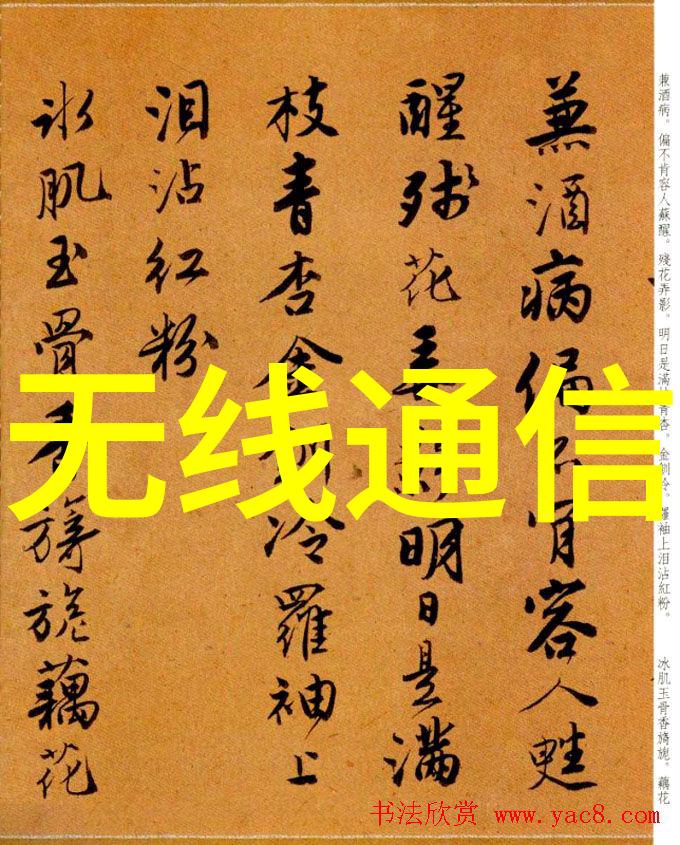 兼酒病。偏不肯容人蘇醒。殘花弄影。明日是滿枝青杏。金釧冷。羅袖上泪沾紅粉。
冰肌玉骨香旖旎。藕花
兼酒病偏不肯容人甦
醒残花弄影明日是满
枝青杏金釧冷羅袖上
泪沾红粉
冰肌玉骨香旖旎藕花
无线通信
书法欣赏 www.yac8.com